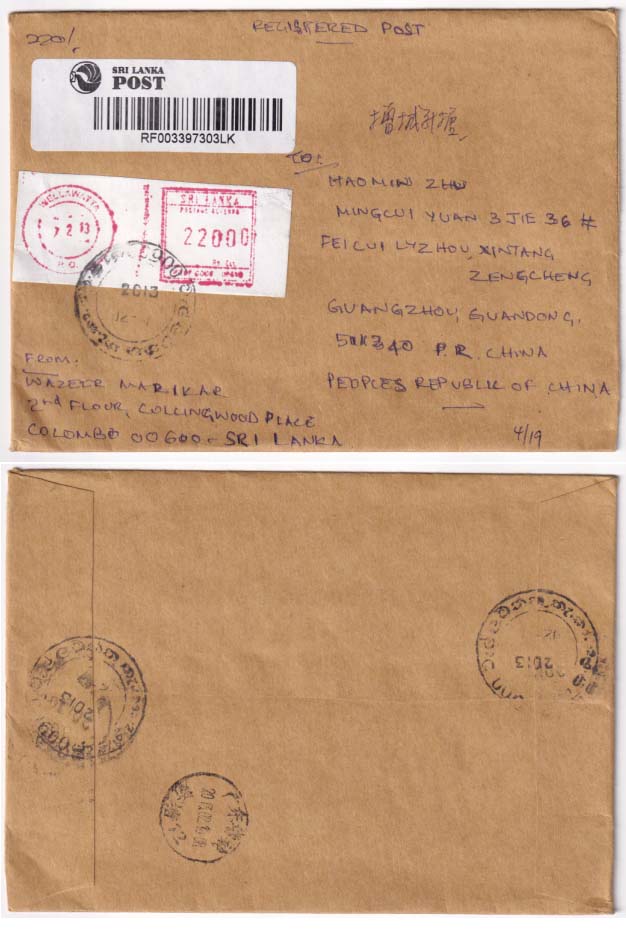 220/.
REGISTERED POST
SRI LANKA
POST
RF003397303LK
增城新塘
TO:
HAOMIN ZHU
MINGCUI YUAN 3 JIE 36 #
FEICUI LVZHOU, XINTANG
ZENGCHENG
GUANGZHOU, GUANDONG,
P.R. CHINA
PEOPLES REPUBLIC OF CHINA
4/19
WELLAWATTA
7 2 13
P.O.
SRI LANKA
POSTAGE
22000
Rs. Cts.
00600
2013
FROM.
WAZEER MARIKAR
2nd FLOUR, COLLINGWOOD PLACE
COLOMBO 00600 - SRI LANKA
2013
2013
广东